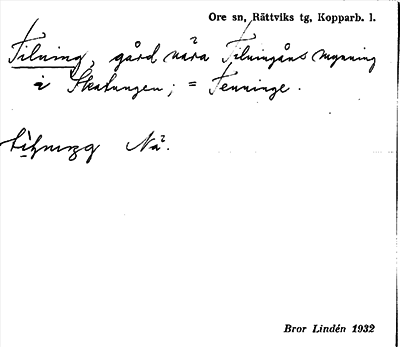 Ore sn, Rättviks tg, Kopparb. l.
Tilning, gård nära Tilningåns mynning
i Skattungen; = Tenninge.
Na².
Bror Lindén 1932